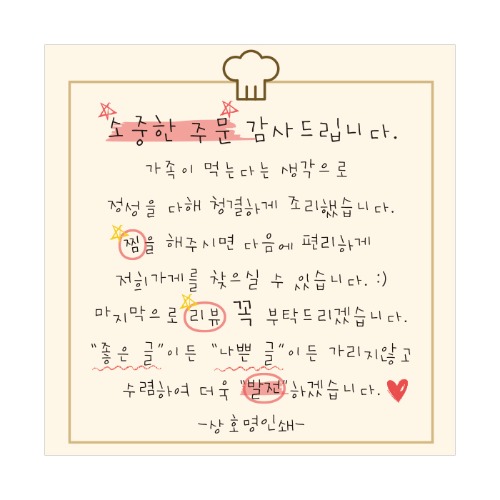 소중한 주문 감사드립니다.
가족이 먹는다는 생각으로
정성을 다해 청결하게 조리했습니다.
찜을 해주시면 다음에 편리하게
저희가게를 찾으실 수 있습니다. :)
마지막으로 리뷰 꼭 부탁드리겠습니다.
"좋은 글"이든 "나쁜 글"이든 가리지않고
수렴하여 더욱 "발전"하겠습니다.
-상호명인쇄-